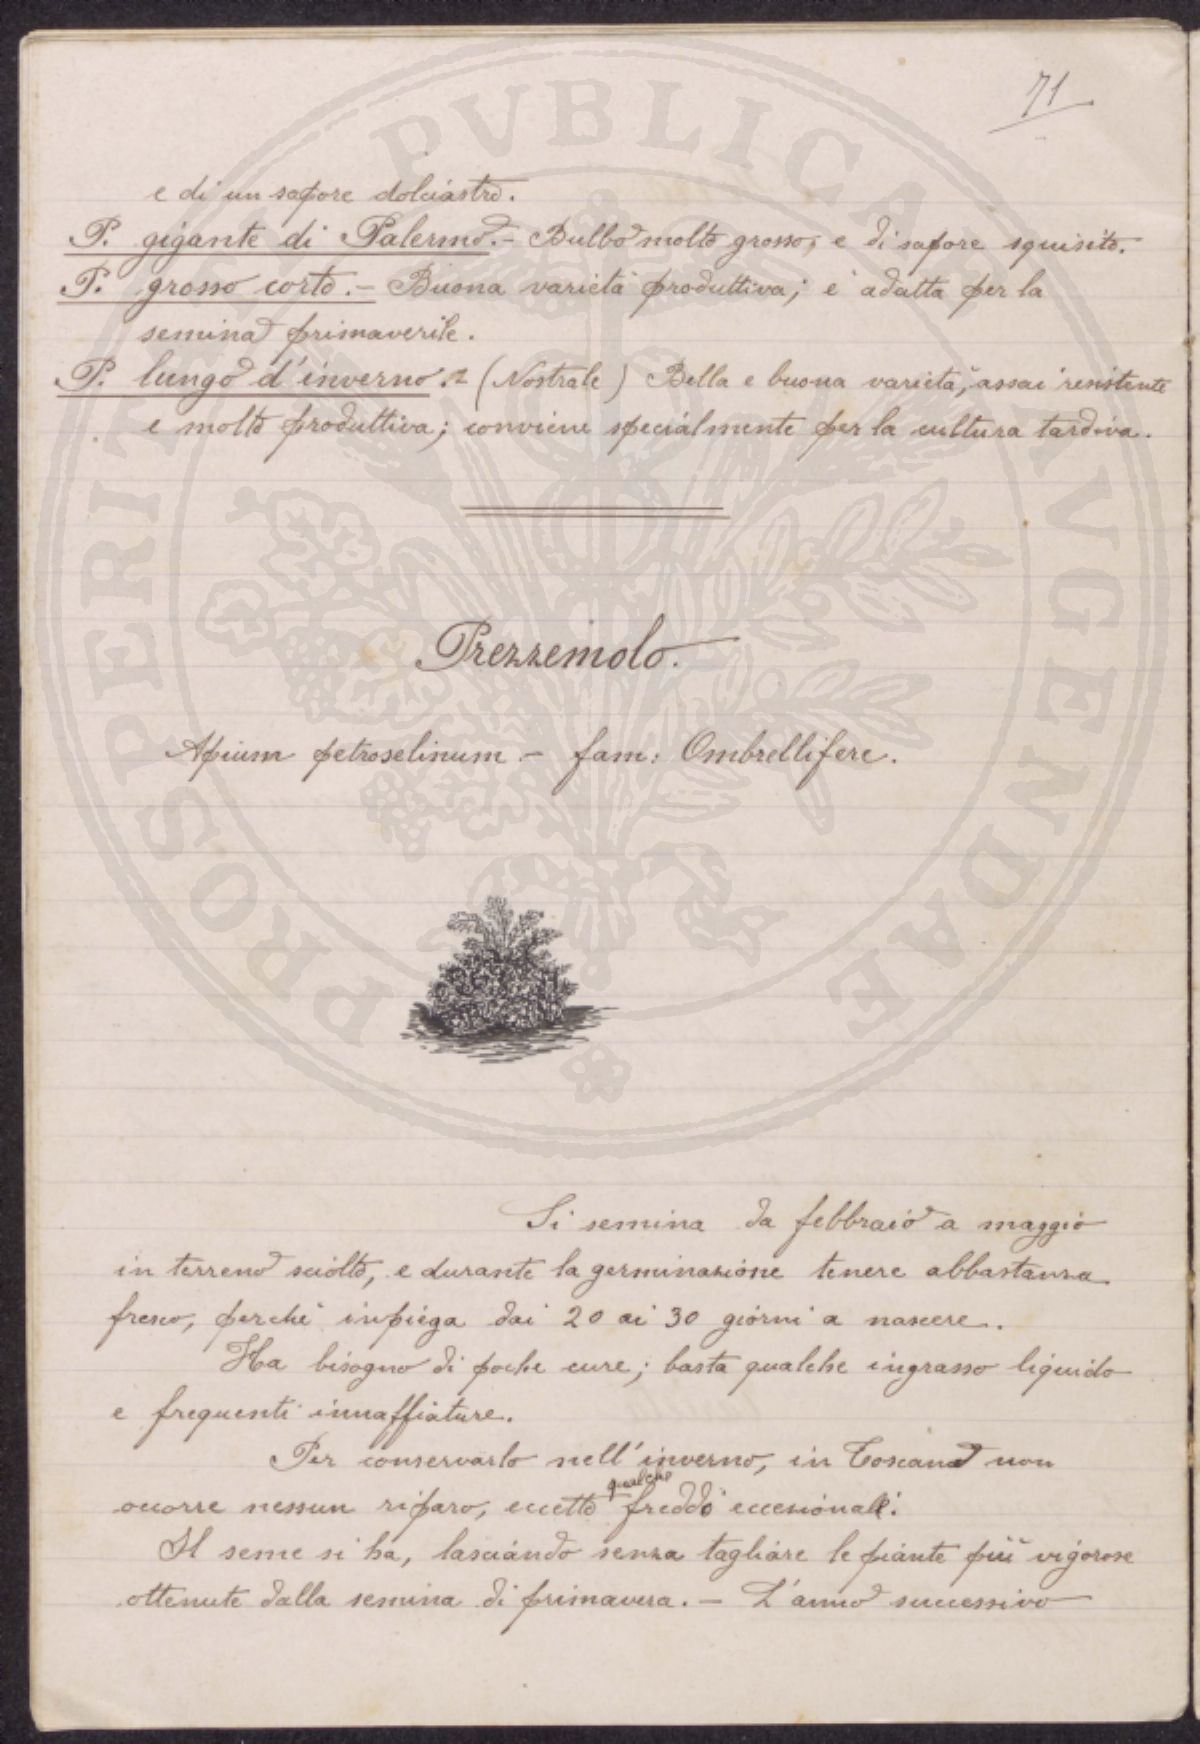 71
e di un sapore dolciastro.
P. gigante di Palermo. - Bulbo molto grosso, e di sapore squisito.
P. grosso corto. - Buona varietà produttiva; è adatta per la
semina primaverile.
P. lungo d'inverno. - (Nostrale) Bella e buona varietà, assai resistente
e molto produttiva; conviene specialmente per la cultura tardiva.
Prezzemolo.
Apium petroselinum - fam: Ombrellifere.
Si semina da febbraio a maggio
in terreno sciolto, e durante la germinazione tenere abbastanza
fresco, perchè inpiega dai 20 ai 30 giorni a nascere.
Ha bisogno di poche cure; basta qualche ingrasso liquido
e frequenti innaffiature.
Per conservarlo nell'inverno, in Toscana non
qualche
occorre nessun riparo, eccetto freddo eccezionale.
Il seme si ha, lasciando senza tagliare le piante più vigorose
ottenute dalla semina di primavera. - L'anno successivo
PROSPERITATI PVBLICAE AVGENDAE